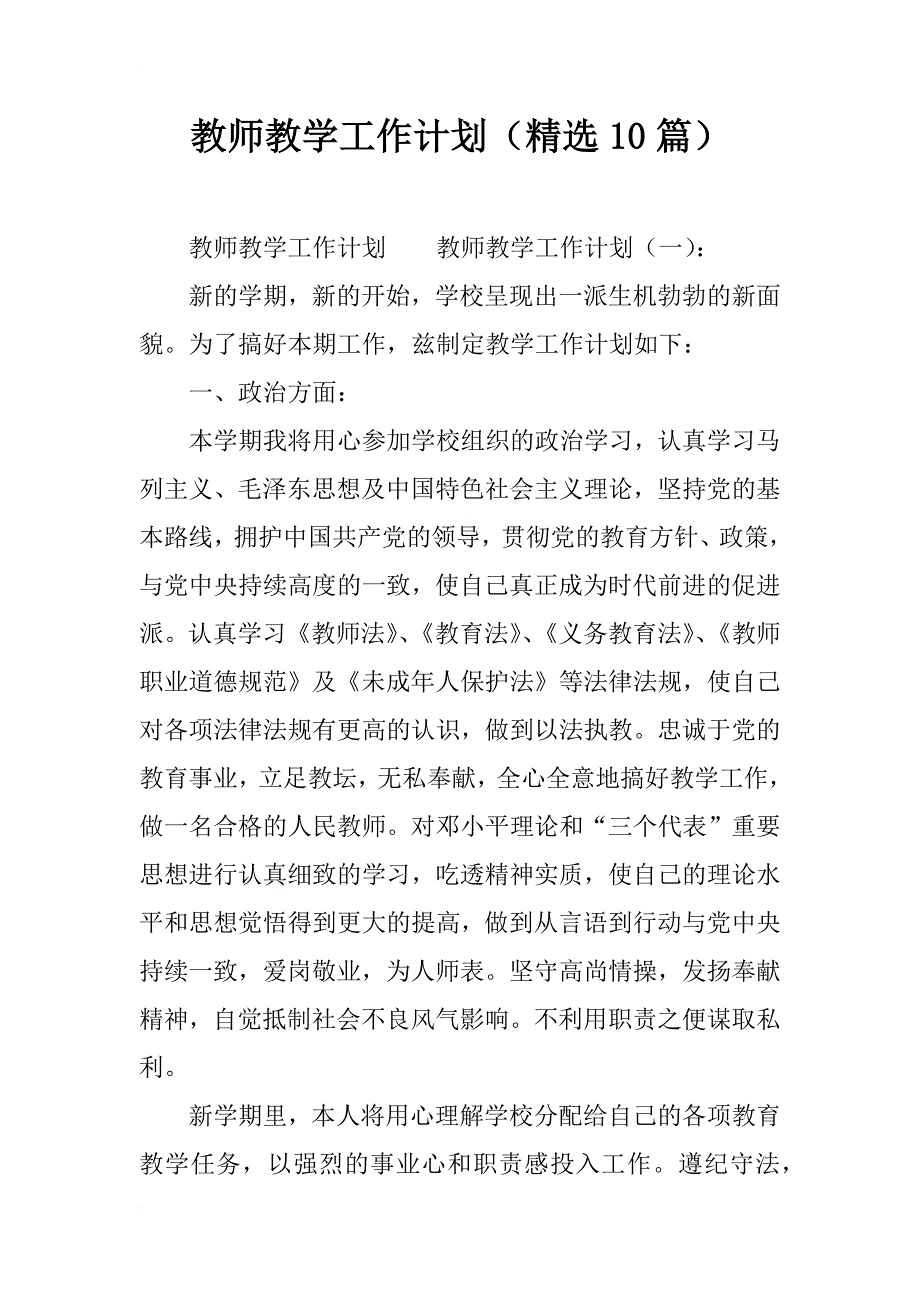 教师教学工作计划（精选10篇）
教师教学工作计划　　教师教学工作计划（一）：
新的学期，新的开始，学校呈现出一派生机勃勃的新面
貌。为了搞好本期工作，兹制定教学工作计划如下：
一、政治方面：
本学期我将用心参加学校组织的政治学习，认真学习马
列主义、毛泽东思想及中国特色社会主义理论，坚持党的基
本路线，拥护中国共产党的领导，贯彻党的教育方针、政策，
与党中央持续高度的一致，使自己真正成为时代前进的促进
派。认真学习《教师法》、《教育法》、《义务教育法》、《教师
职业道德规范》及《未成年人保护法》等法律法规，使自己
对各项法律法规有更高的认识，做到以法执教。忠诚于党的
教育事业，立足教坛，无私奉献，全心全意地搞好教学工作，
做一名合格的人民教师。对邓小平理论和“三个代表”重要
思想进行认真细致的学习，吃透精神实质，使自己的理论水
平和思想觉悟得到更大的提高，做到从言语到行动与党中央
持续一致，爱岗敬业，为人师表。坚守高尚情操，发扬奉献
精神，自觉抵制社会不良风气影响。不利用职责之便谋取私
利。
新学期里，本人将用心理解学校分配给自己的各项教育
教学任务，以强烈的事业心和职责感投入工作。遵纪守法，